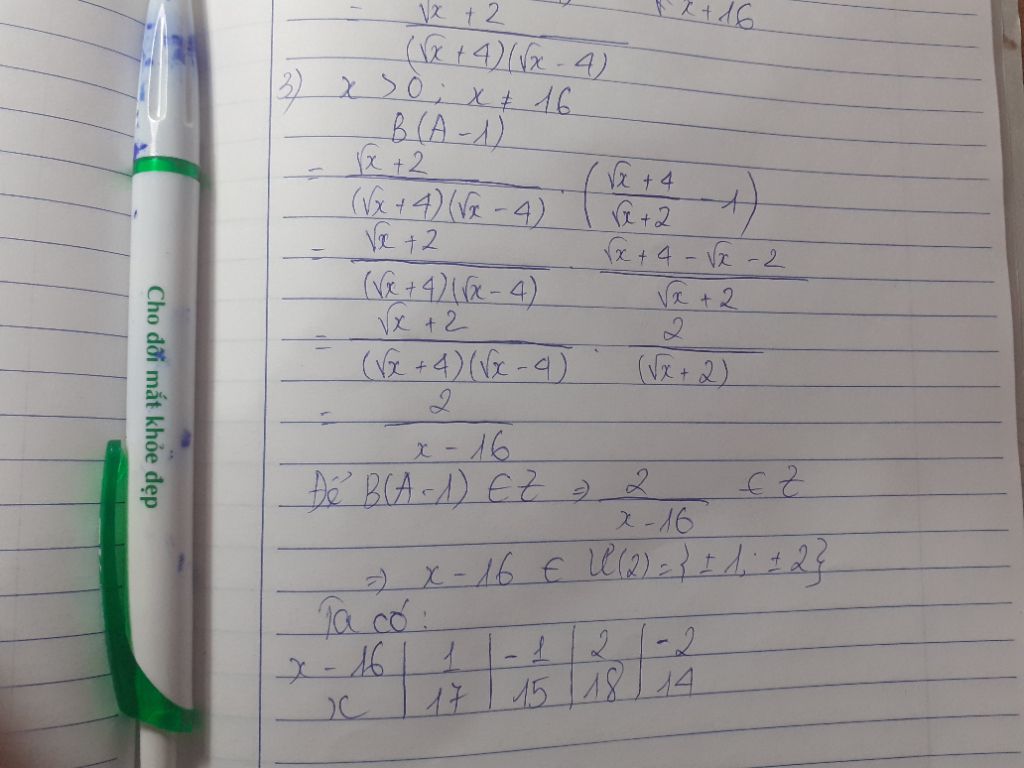 = √x + 2 / (√x + 4)(√x - 4)
x + 16
3) x > 0 ; x ≠ 16
B(A - 1)
= √x + 2 / (√x + 4)(√x - 4) . (√x + 4 / √x + 2 - 1)
= √x + 2 / (√x + 4)(√x - 4) . √x + 4 - √x - 2 / √x + 2
= √x + 2 / (√x + 4)(√x - 4) . 2 / (√x + 2)
= 2 / x - 16
Để B(A - 1) ∈ Z => 2 / x - 16 ∈ Z
=> x - 16 ∈ Ư(2) = {±1; ±2}
Ta có:
x - 16 | 1 | -1 | 2 | -2
x | 17 | 15 | 18 | 14
Cho đôi mắt khỏe đẹp